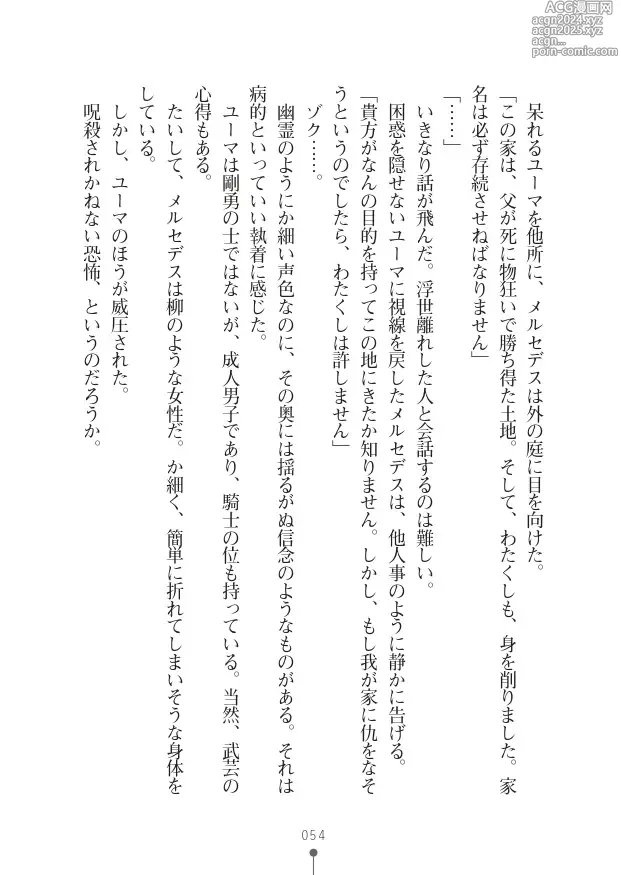 ACG漫画网
acgn2024.xyz
acgn2025.xyz
acgn...
porn-comic.com
呆れるユーマを他所に、メルセデスは外の庭に目を向けた。
「この家は、父が死に物狂いで勝ち得た土地。そして、わたくしも、身を削りました。家
名は必ず存続させねばなりません」
「……」
いきなり話が飛んだ。浮世離れした人と会話するのは難しい。
困惑を隠せないユーマに視線を戻したメルセデスは、他人事のように静かに告げる。
「貴方がなんの目的を持ってこの地にきたか知りません。しかし、もし我が家に仇をなそ
うというのでしたら、わたくしは許しません」
ゾク……。
幽霊のようにか細い声色なのに、その奥には揺るがぬ信念のようなものがある。それは
病的といっていい執着に感じた。
ユーマは剛勇の士ではないが、成人男子であり、騎士の位も持っている。当然、武芸の
心得もある。
たいして、メルセデスは柳のような女性だ。か細く、簡単に折れてしまいそうな身体を
している。
しかし、ユーマのほうが威圧された。
呪殺されかねない恐怖、というのだろうか。
054